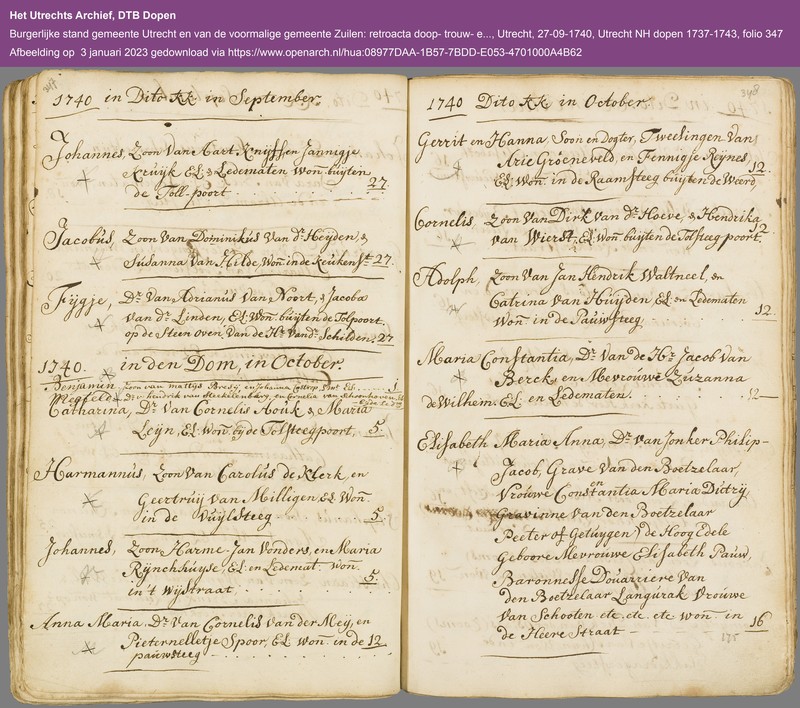 Het Utrechts Archief, DTB Dopen
Burgerlijke stand gemeente Utrecht en van de voormalige gemeente Zuilen: retroacta doop- trouw- e..., Utrecht, 27-09-1740, Utrecht NH dopen 1737-1743, folio 347
Afbeelding op 3 januari 2023 gedownload via https://www.openarch.nl/hua:08977DAA-1B57-7BDD-E053-4701000A4B62
347
1740 in Dito kk in September.
Johannes, Zoon Van Aart Knijff, en Jannigje
Kruijk El: & Ledematen Won: buijten
de Toll-poort 27
Jacobus, Zoon Van Dominikus Van dr Heyden, &
Susanna Van Hilde, Won: in de Keuken st: 27.
Fijgje, Dr Van Adrianus Van Noort, & Jacoba
Van dr Linden, El: Won: buijten de Tolpoort
op de Steen Oven Van de Hr Vandr Schilden. 27
1740. in den Dom, in October.
Benjamin, Zoon van mattijs 1
Megfeld Dr v: hendrik van Mecklenburg, en Cornelia van Schoonhoven
Catharina, Dr Van Cornelis Aouk & Maria
Leijn, El: Won: bij de Tolsteegpoort, 5.
Harmannus, Zoon Van Carolus de Klerk, en
Geertruij van Milligen, El: Won:
in de Vuijlsteeg 5
Johannes, Zoon Harme Jan Vonders, en Maria
Rijnckhuijse, El: en Ledemat: won:
in 't Wijstraat 5.
Anna Maria, Dr Van Cornelis Van der Meij, en
Pieternelletje Spoor, El: Won: in de 12
pauwsteeg
348
1740 Dito kk in October.
Gerrit en Hanna, Soon en Dogter, Tweelingen Van
Arie Groeneveld, en Fennigje Reijnes,
El: Won: in de Raamsteeg buijten de Weerd 12.
Cornelis, Zoon Van Dirk van dr Hoeve, & Hendrika
van Wierst, El: Won: buijten de Tolsteeg poort. 12
Adolph, Zoon Van Jan Hendrik Waltneel, en
Catrina van Huijden, El: en Ledematen
Won: in de Pauwsteeg 12.
Maria Constantia, Dr Van de Hr Jacob Van
Berck, en Mevrouwe Zuzanna
de Wilhem. El: en Ledematen. 12
Elisabeth Maria Anna, Dr van Jonker Philip-
Jacob, Grave Van den Boetzelaar,
en
Vrouwe Constantia Maria Dictrij
Gravinne van den Boetzelaar
Peeter of Getuygen) de Hoog Edele
Geboore Mevrouwe Elisabeth Pauw,
Baronnesse Douarriere Van
den Boetzelaar Langurak Vrouwe
Van Schooten etc. etc. etc won: in
de Heere Straat 16